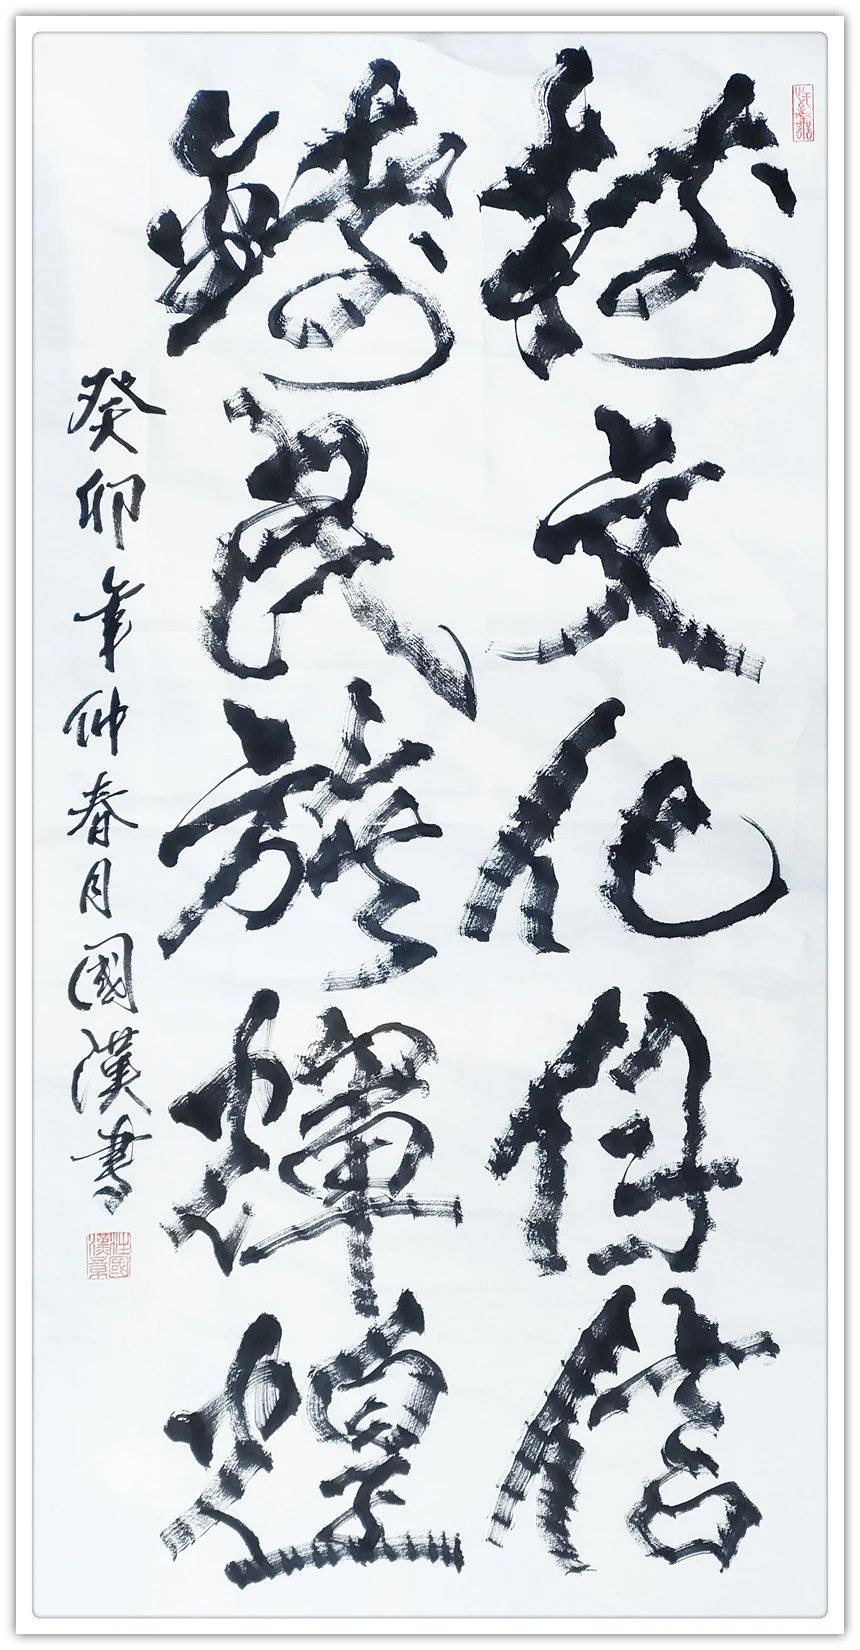 樹文化自信
鑄民族煇煌
癸卯年仲春月國漢書